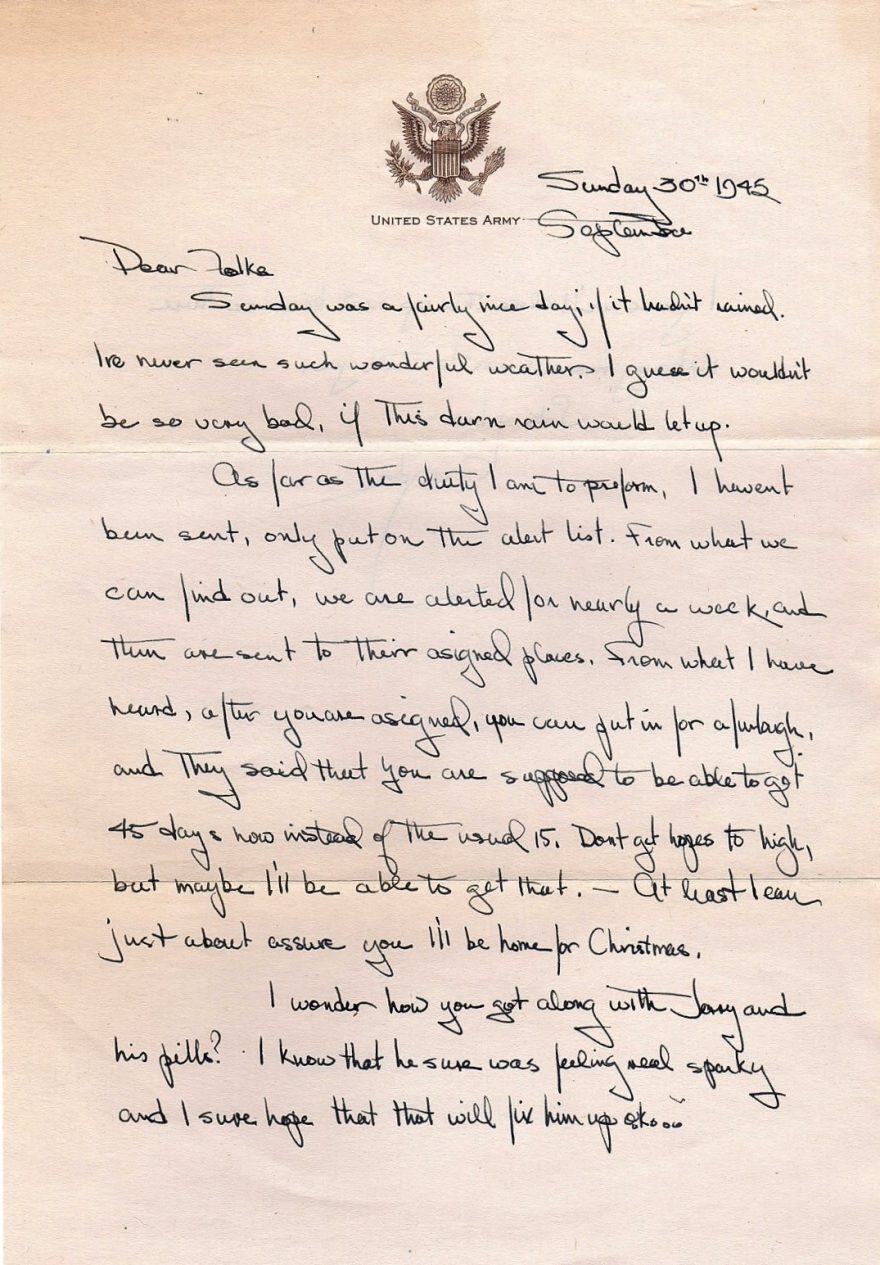 Sunday 30th 1945
UNITED STATES ARMY
September
Dear Folks
Sunday was a fairly nice day, if it hadn't rained.
I've never seen such wonderful weather. I guess it wouldn't
be so very bad, if this darn rain would let up.
As far as the duty I am to preform, I havent
been sent, only put on the alert list. From what we
can find out, we are alerted for nearly a week, and
then are sent to their asigned places. From what I have
heard, after you are asigned, you can put in for a furlough,
and they said that you are supposed to be able to get
45 days now instead of the usual 15. Dont get hopes to high,
but maybe I'll be able to get that. — At least I can
just about assure you I'll be home for Christmas.
I wonder how you got along with Jerry and
his pills? I know that he sure was feeling real sparky
and I sure hope that that will fix him up